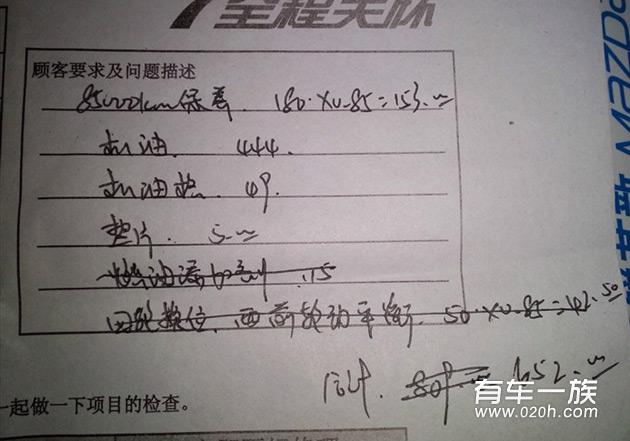 全程关怀
顾客要求及问题描述
85000km保养. 180.×0.85=153.00
机油. 444.
机油格. 49.
垫片. 5.00
燃油添加剂 .15
四轮换位. 两前轮动平衡. 50.×0.85=42.50
合计. 652.00
一起做一下项目的检查。
有车一族
www.020h.com
MAZDA